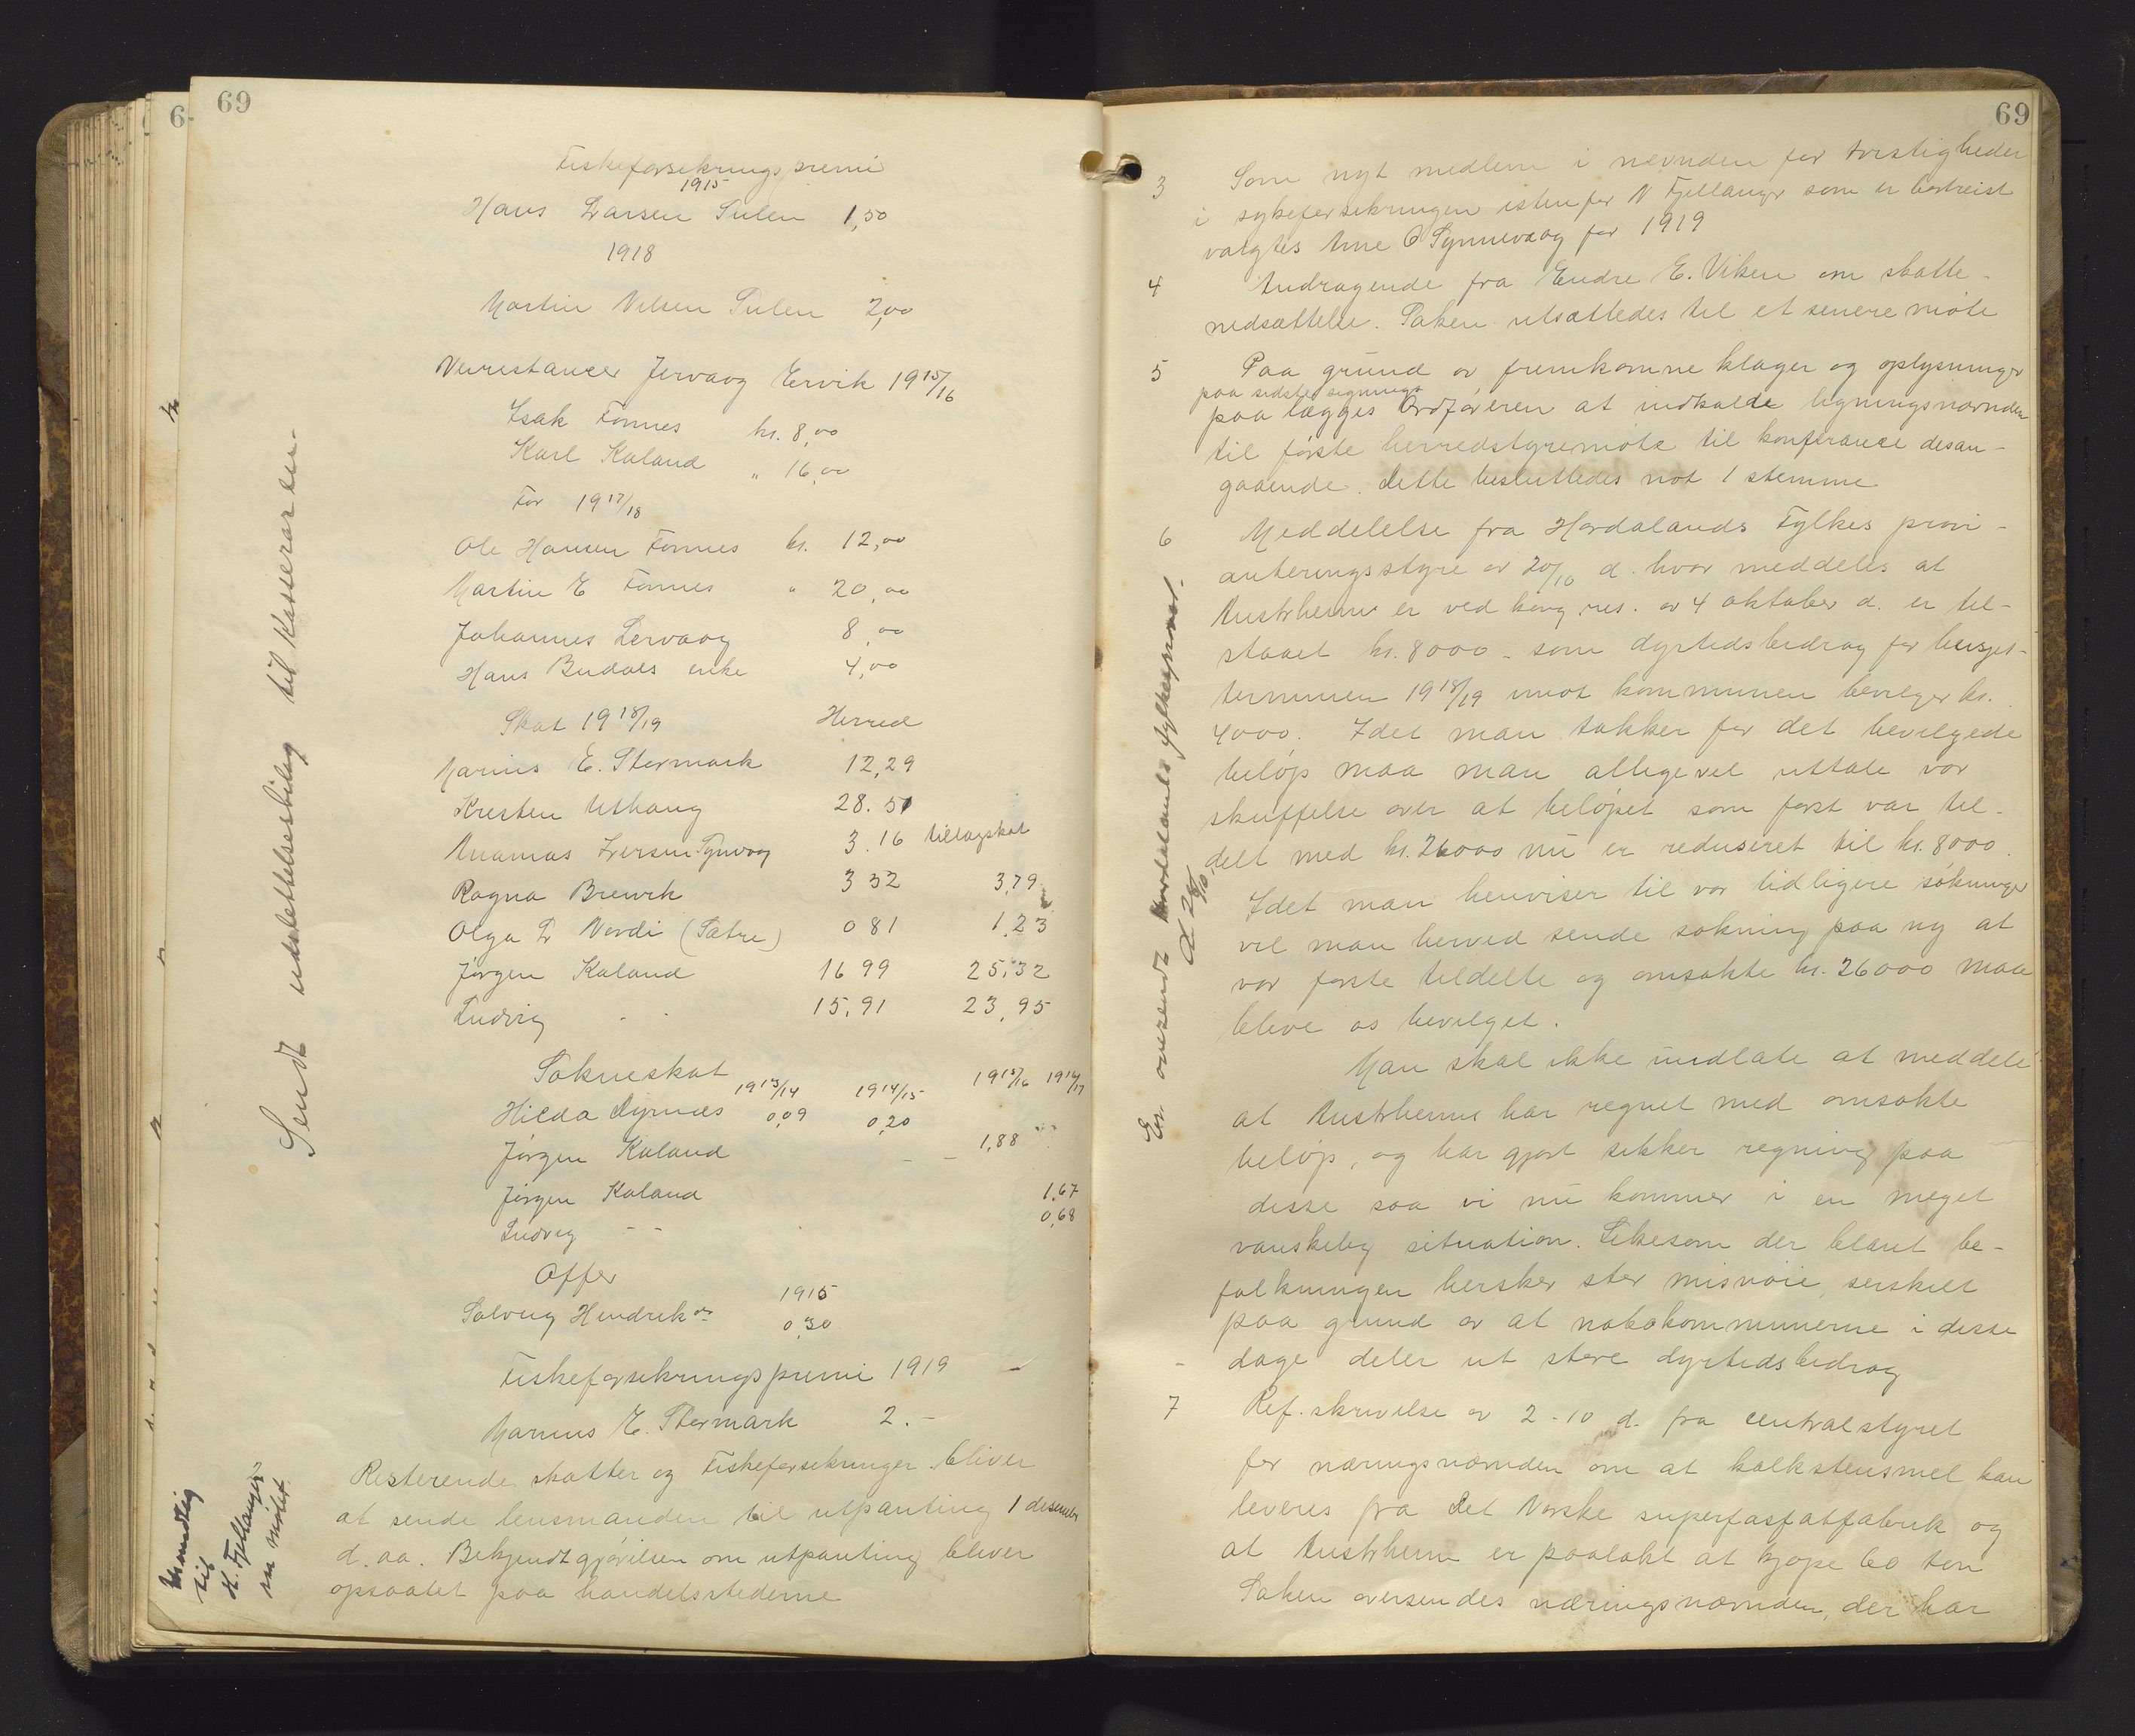 69
Fiskeforsekringspremi
1915
Hans Larsen Sulen 1,50
1918
Martin Nilsen Sulen 2,00
Veirestancer Jervaag Ervik 19 15/16
Isak Fonnes kr. 8,00
Karl Kaland " 16,00
For 19 17/18
Ole Hansen Fonnes kr. 12,00
Martin E Fonnes " 20,00
Johannes Lervaag 8,00
Hans Budals enke 4,00
Skat 19 18/19 Herred
Marius E. Stormark 12,29
Kresten Uthaug 28.51
Iversen Synvaag 3.16 tillægskat
Ragna Brevik 3 32 3,79
Olga L Nordi (Sætre) 0 81 1,23
Jørgen Kaland 16 99 25,32
Ludvig - - 15,91 23,95
Sokneskat
19 13/14 19 14/15 19 15/16 19 16/17
Hilda Dyrnes 0,09 0,20
Jørgen Kaland - - 1,88
Jørgen Kaland 1,67
Ludvig - - 0,68
Offer
1915
Solveig Hendriks 0,30
Fiskeforsekringspremi 1919
Marius E. Stormark 2.-
Resterende skatter og Fiskeforsekringer bliver
at sende lensmanden til utpanting 1 desember
d. aa. Bekjendtgjørelsen om utpanting bliver
opsaatet paa handelsstederne
Sendt utslettelsesbilag til Kassereren
til
K. Fjellanger
69
3 Som nyt medlem i nævnden for tvistigheder
i sykeforsikringen istenfor N Fjellanger som er bortreist
valgtes Arne O Synnevaag for 1919
4 Andragende fra Endre E. Viken om skatte-
nedsættelse. Saken utsættedes til et senere møte
5 Paa grund av fremkomne klager og oplysninger
paa sidste
paa lægges Ordføreren at indkalde ligningsnævnden
til første herredstyremøte til konferance desan-
gaaende. Dette besluttedes mot 1 stemme
6 Meddelelse fra Hordalands Fylkes provi-
anteringsstyre av 20/10 d. hvor meddeles at
Austrheim er ved kong. res. av 4 oktober d. er til-
staaet kr. 8000 - som dyrtidsbidrag for budsjet-
terminen 19 18/19 imot kommunen bevilger kr.
4000. Idet man takker for det bevilgede
beløp maa man alligevel uttale vor
skuffelse over at beløpet som først var til-
delt med kr. 26000 nu er reduseret til kr. 8000.
Idet man henviser til vor tidligere søkninger
vil man herved sende søkning paa ny at
vor første tildelte og omsøkte kr. 26000 maa
blive os bevilget.
Man skal ikke undlate at meddele
at Austrheim har regnet med omsøkte
beløp, og har gjort sikker regning paa
disse saa vi nu kommer i en meget
vanskelig situation. Likesom der blant be-
folkningen hersker stor misnøie, serskilt
paa grund av at nabokommunerne i disse
dage deler ut store dyrtidsbidrag
7 Ref. skrivelse av 2-10 d. fra centralstyret
for næringsnævnden om at kalkstensmel kan
leveres fra Det Norske superfosfatfabrik og
at Austrheim er paalakt at kjøpe 60 ton
Saken oversendes næringsnævnden, der har
Er oversendt Hordalands fylkesprovi.
d. 28/10